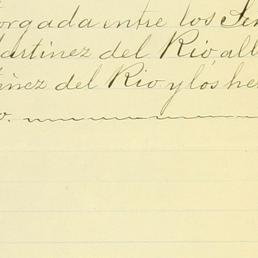 orgada entre los Señ
artinez del Rio, alb
inez del Rio y los he
o.